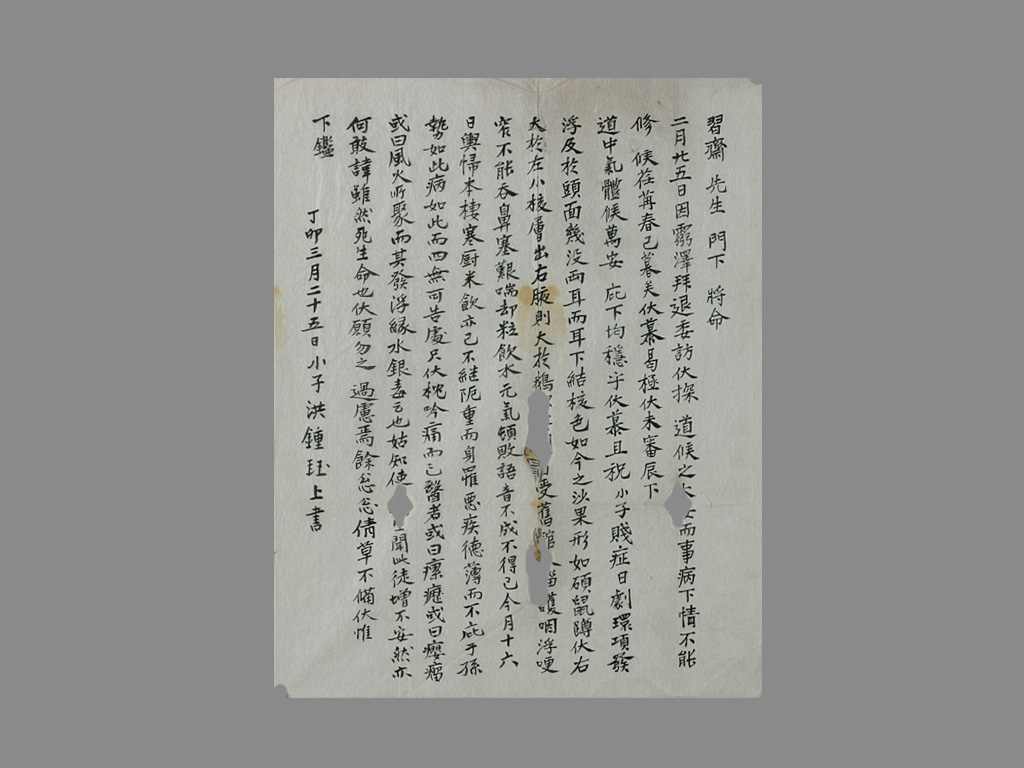 習齋 先生 門下 將命
二月廿五日因霧澤拜退委訪伏探 道候之 而事病下情不能
修 候荏苒春已暮矣伏慕曷極伏未審辰下
道中氣體候萬安 庇下均穩乎伏慕且祝 小子賤症日劇環項發
浮及於頭面幾没兩耳而耳下結核色如今之沙果形如碩鼠蹲伏右
大於左小核層出右腋則大於鵝 受舊館 護咽浮哽
窄不能吞鼻塞艱喘却粒飲水元氣頓敗語音不成不得已今月十六
日輿歸本棲寒厨米飲亦已不継阨重而身罹惡疾德薄而不庇于孫
勢如此病如此而四無可告處只伏枕吟痛而已醫者或曰瘰癧或曰癭瘤
或曰風火所聚而其發浮緣水銀毒云也姑知使 聞此徒增不安然亦
何敢諱雖然死生命也伏願勿之 過慮焉餘忩忩倩草不備伏惟
下鑑
丁卯三月二十五日小子 洪鍾珏 上書